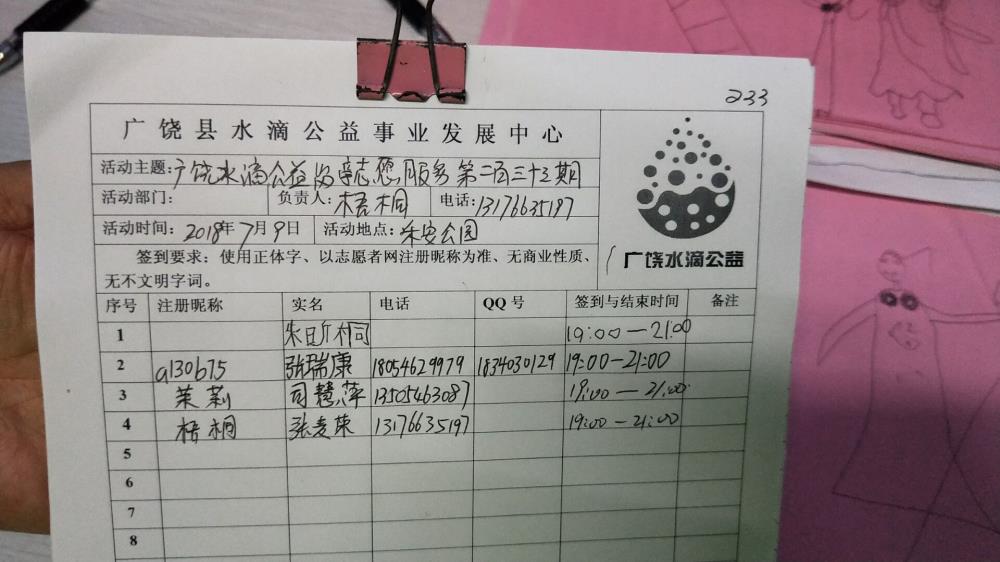 233
广饶县水滴公益事业发展中心
活动主题:广饶水滴公益 志愿服务第二百三十三期
活动部门: 负责人:梧桐 电话:13176635197
活动时间:2018年7月9日 活动地点:乐安公园
签到要求:使用正体字、以志愿者网注册昵称为准、无商业性质、
无不文明字词。
广饶水滴公益
序号 注册昵称 实名 电话 QQ号 签到与结束时间 备注
1 朱昕桐 19:00—21:00
2 a130675 张瑞康 18054629979 1834030129 19:00—21:00
3 茉莉 司慧萍 13505463087 19:00—21:00
4 梧桐 张麦荣 13176635197 19:00—21:00
5
6
7
8